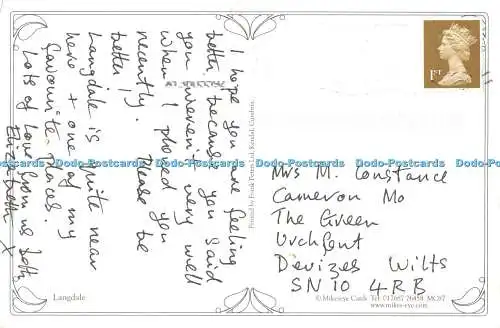 I hope you are feeling
better because you said
you weren't very well
when I phoned you
recently. Please be
better!
Langdale is quite near
here + one of my
favourite places.
Lots of love from us both
Elizabeth x
Langdale
1ST
Mrs M. Constance
Cameron Mo
The Green
Urchfont
Devizes Wilts
SN10 4RB
© Mikeseye Cards Tel: 017687 76458 MC87
www.mikes-eye.com
Dodo-Postcards Dodo-Postcards Dodo-Postcards Dodo-Postcards Dodo-Postcards